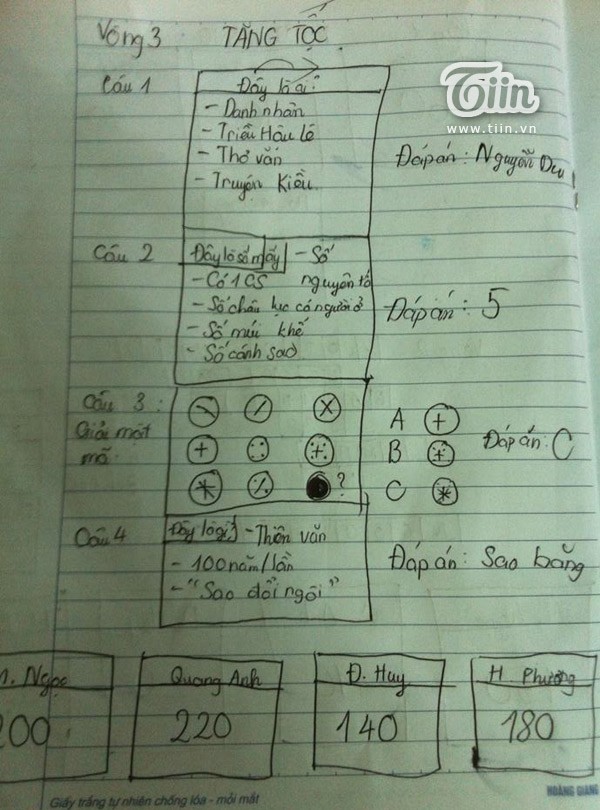 Vòng 3 TĂNG TỐC
Tiin
www.tiin.vn
Câu 1
Đây là ai?
- Danh nhân
- Triều Hậu Lê
- Thơ văn
- Truyện Kiều
Đáp án: Nguyễn Du
Câu 2
Đây là số mấy - Số nguyên tố
- Có 1 CS
- Số châu lục có người ở
- Số múi khế
- Số cánh sao
Đáp án: 5
Câu 3:
Giải mật mã
?
A
B
C
Đáp án: C
Câu 4
Đây là gì? - Thiên văn
- 100 năm/lần
- "Sao đổi ngôi"
Đáp án: Sao băng
Ngọc
Quang Anh
Đ. Huy
H. Phương
200
220
140
180
Giấy trắng tự nhiên chống lóa - mỏi mắt
HOÀNG GIANG